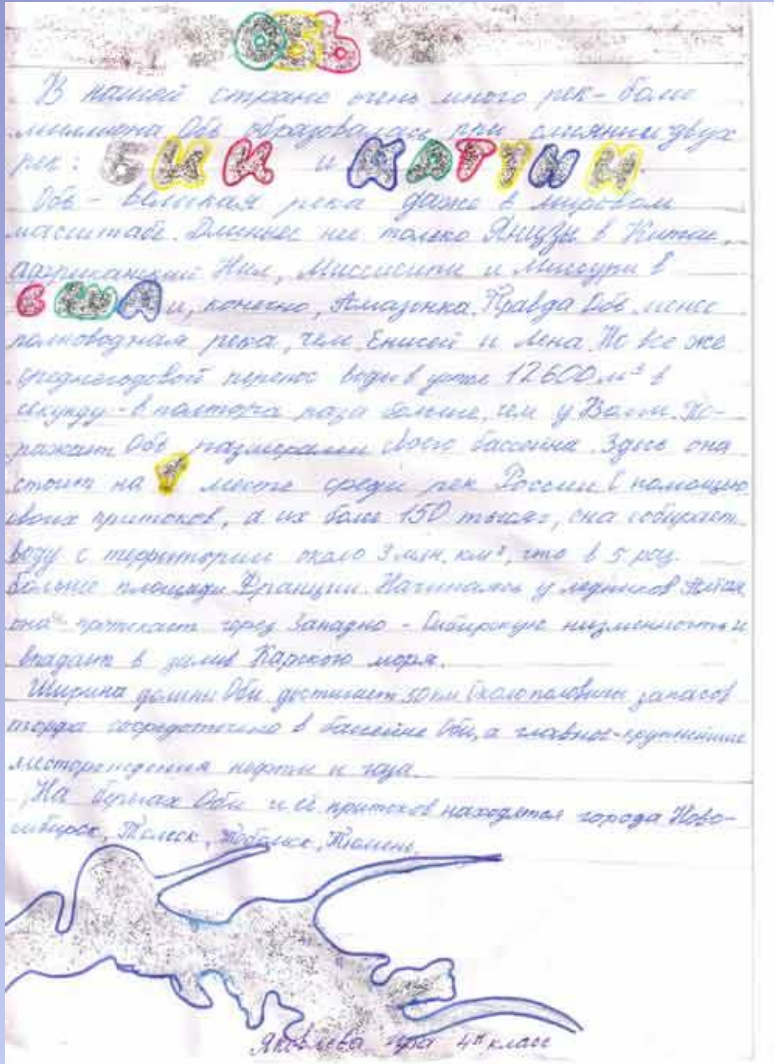 ОБЬ
В нашей стране очень много рек - более
миллиона Обь образовалась при слиянии двух
рек: БИИ и КАТУНИ.
Обь - великая река даже в мировом
масштабе. Длиннее нее только Янцзы в Китае,
африканский Нил, Миссисипи и Миссури в
США и, конечно, Амазонка. Правда Обь менее
полноводная река, чем Енисей и Лена. Но все же
среднегодовой перенос воды в устье 12600 м³ в
секунду - в полтора раза больше, чем у Волги. По-
ражает Обь размерами своего бассейна. Здесь она
стоит на 1 месте среди рек России С помощью
своих притоков, а их более 150 тысяч, она собирает
воду с территории около 3 млн. км², что в 5 раз
больше площади Франции. Начинаясь у ледников Алтая
она протекает через Западно - Сибирскую низменность и
впадает в залив Карского моря.
Ширина долины Оби достигает 50 км Около половины запасов
торфа сосредоточено в бассейне Оби, а главное - крупнейшие
месторождения нефти и газа.
На берегах Оби и её притоков находятся города Ново-
сибирск, Томск, Тобольск, Тюмень
Яковлева 4 класс